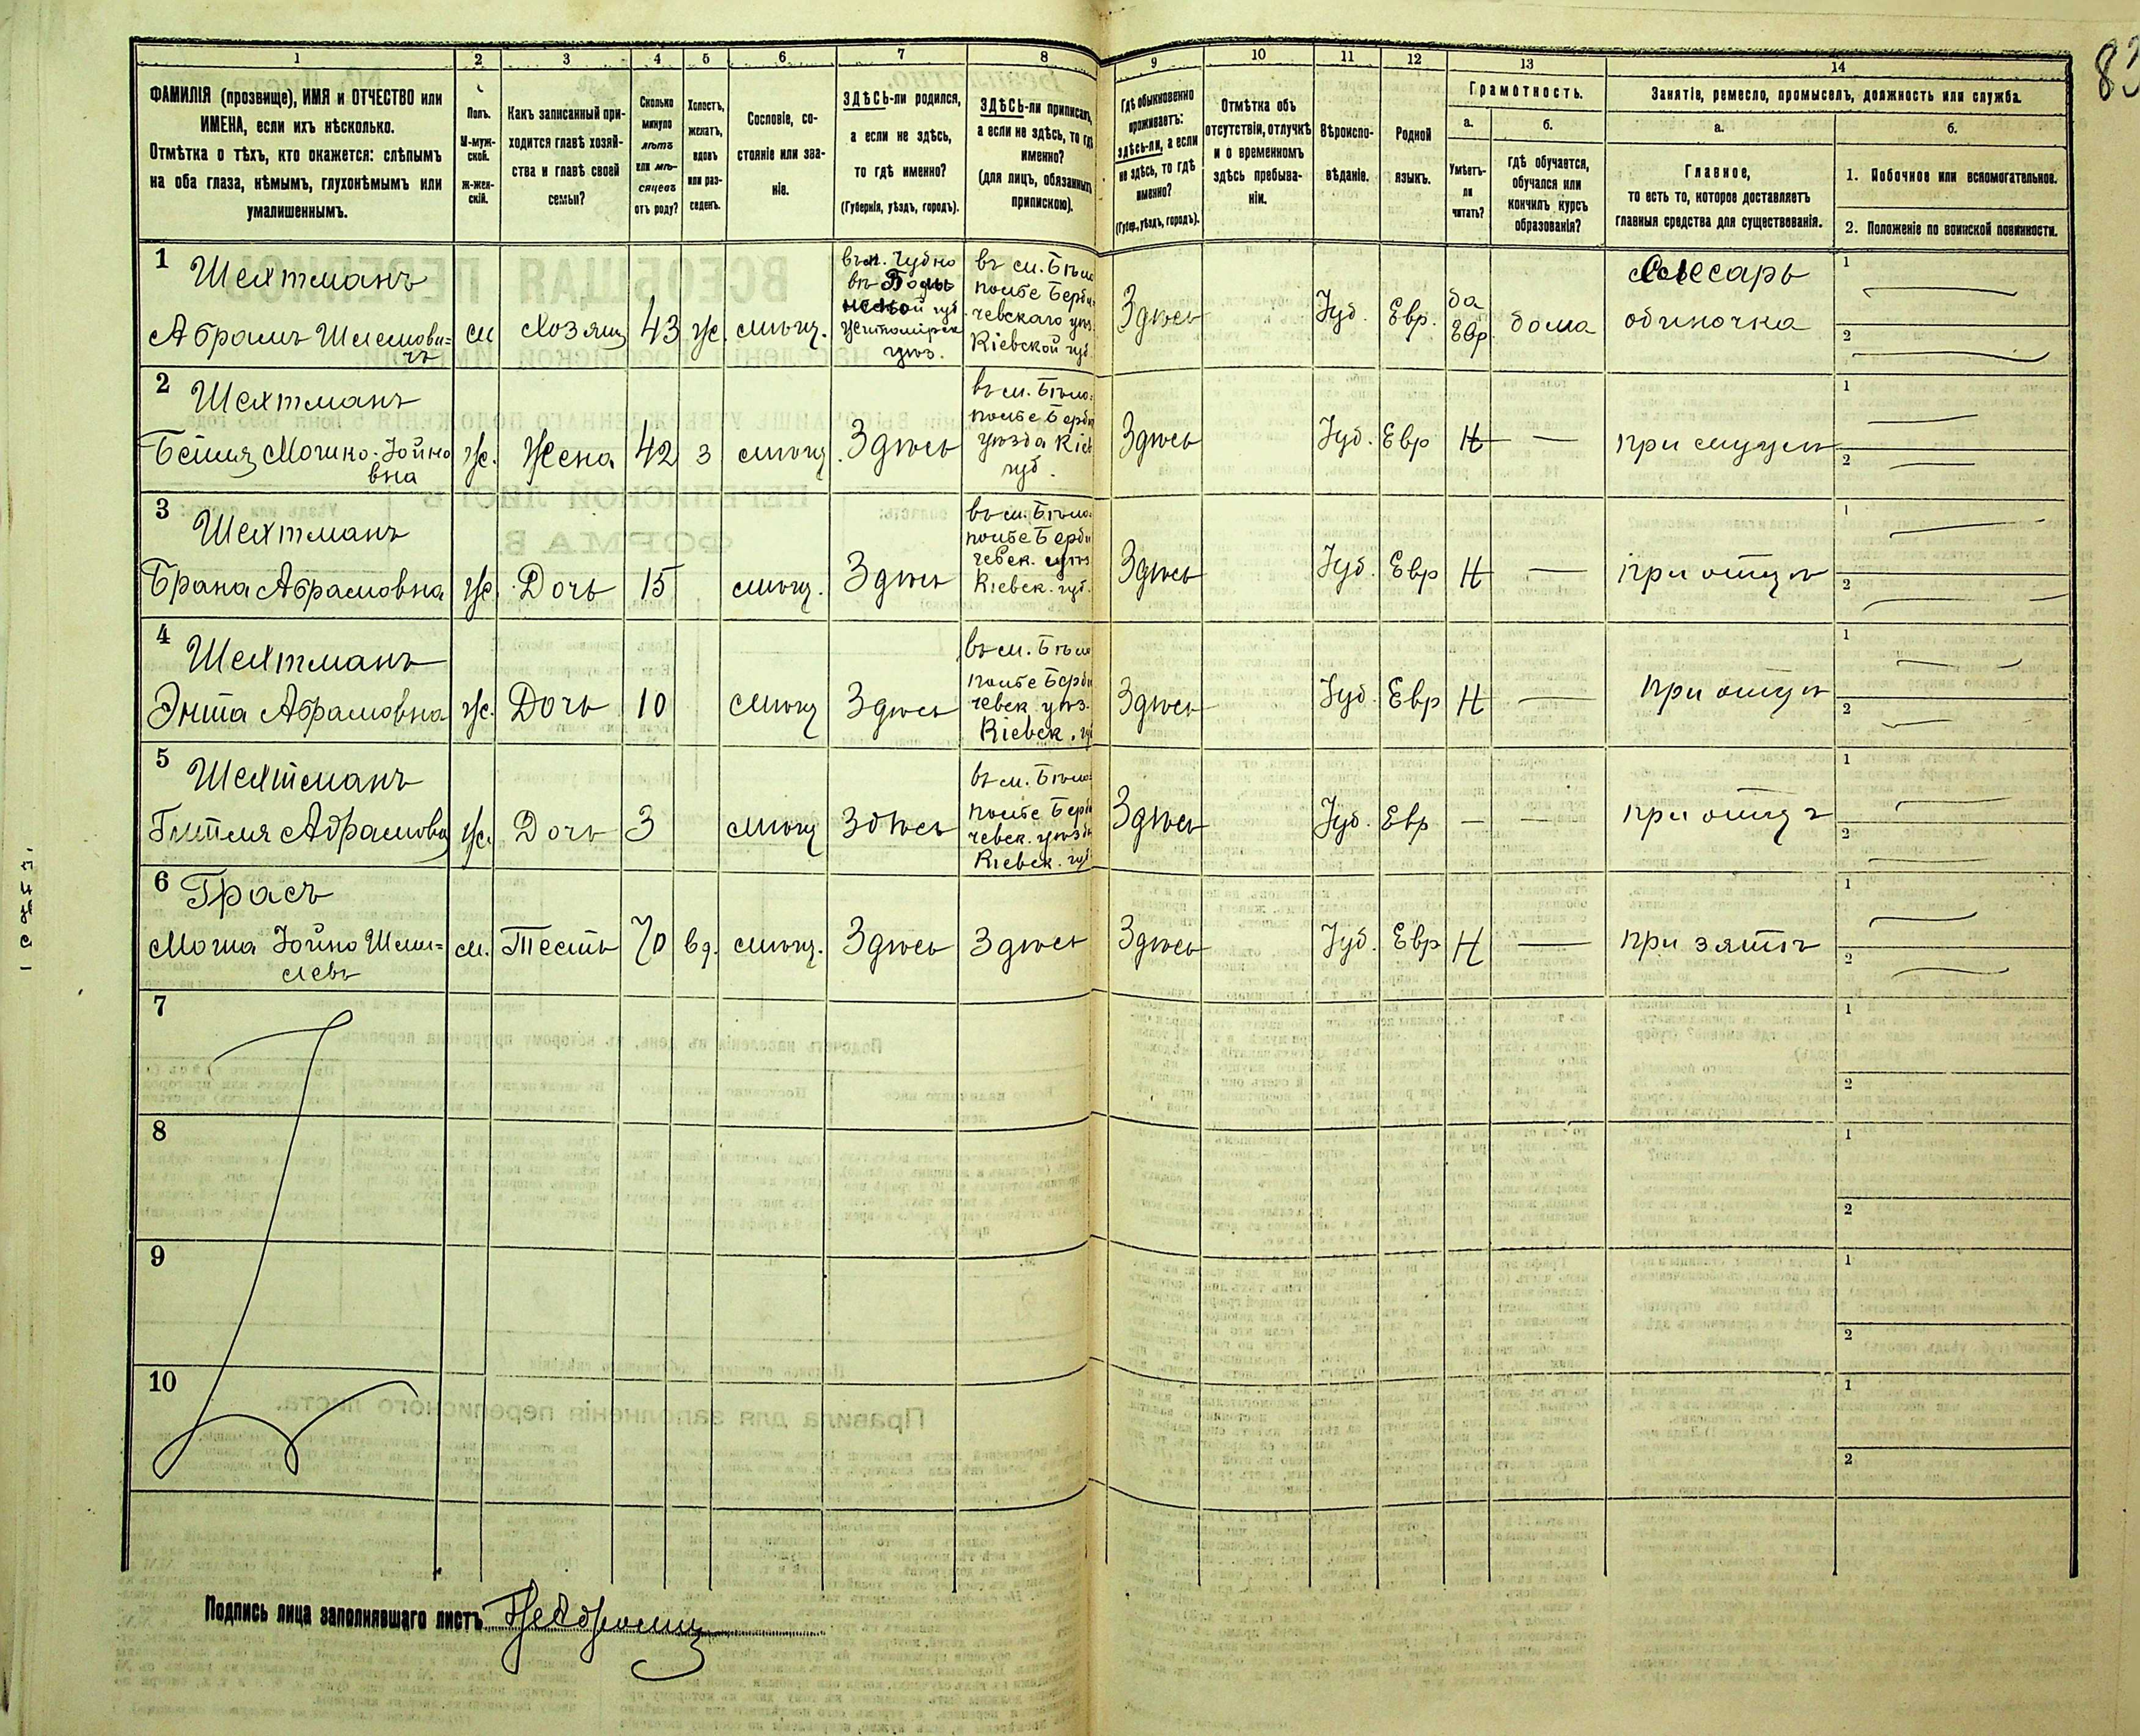 83
1 2 3 4 5 6 7 8 9 10 11 12 13 14
ФАМИЛІЯ (прозвище), ИМЯ и ОТЧЕСТВО или
ИМЕНА, если ихъ нѣсколько.
Отмѣтка о тѣхъ, кто окажется: слѣпымъ
на оба глаза, нѣмымъ, глухонѣмымъ или
умалишеннымъ.
Полъ.
М-муж-
ской.
ж-жен-
скій.
Какъ записанный при-
ходится главѣ хозяй-
ства и главѣ своей
семьи?
Сколько
минуло
лѣтъ
или мѣ-
сяцевъ
отъ роду?
Холостъ,
женатъ,
вдовъ
или раз-
веденъ.
Сословіе, со-
стояніе или зва-
ніе.
ЗДѢСЬ-ли родился,
а если не здѣсь,
то гдѣ именно?
(Губернія, уѣздъ, городъ).
ЗДѢСЬ-ли приписанъ,
а если не здѣсь, то гдѣ
именно?
(для лицъ, обязанныхъ
припискою).
Гдѣ обыкновенно
проживаетъ:
здѣсь-ли, а если
не здѣсь, то гдѣ
именно?
(Губер., уѣздъ, городъ).
Отмѣтка объ
отсутствіи, отлучкѣ
и о временномъ
здѣсь пребыва-
ніи.
Вѣроиспо-
вѣданіе.
Родной
языкъ.
Грамотность.
а.
Умѣетъ-
ли
читать?
б.
гдѣ обучается,
обучался или
кончилъ курсъ
образованія?
Занятіе, ремесло, промыселъ, должность или служба.
а.
Главное,
то есть то, которое доставляетъ
главныя средства для существованія.
б.
1. Побочное или вспомогательное.
2. Положеніе по воинской повинности.
1
Шехтманъ
Абрамъ Шлемови=
чъ
м
Хозяин
43
ж.
мѣщ.
въ м. Чудно
въ
ской губ
Житомірск
уѣз.
въ м. Бѣло
полье Берди
чевскаго уѣз
Кіевской губ.
Здѣсь
Іуд.
Евр.
да
Евр
дома
Слесарь
одиночка
1
2
2
Шехтманъ
Бейля Мошко-Іойно
вна
ж.
Жена
42
з
мѣщ.
Здѣсь
въ м. Бѣло=
полье Берди
уѣзда Кіев
губ.
Здѣсь
Іуд.
Евр
Н
—
при мужѣ
1
2
3
Шехтманъ
Брана Абрамовна
ж
Дочь
15
мѣщ.
Здѣсь
въ м. Бѣло=
полье Берди
чевск. уѣз
Кіевск. губ.
Здѣсь
Іуд.
Евр
Н
—
при отцѣ
1
2
4
Шехтманъ
Энта Абрамовна
ж.
Дочь
10
мѣщ
Здѣсь
въ м. Бѣло
полье Берди
чевск уѣз.
Кіевск. гу
Здѣсь
Іуд.
Евр
Н
—
при отцѣ
1
2
5
Шехтманъ
Гитля Абрамовна
ж.
Дочь
3
мѣщ
Здѣсь
въ м. Бѣло=
полье Берди
чевск. уѣзда
Кіевск. губ
Здѣсь
Іуд.
Евр
—
—
при отцѣ
1
2
6
Грасъ
Моша Іойно Шми=
левъ
м.
Тесть
70
вд.
мѣщ.
Здѣсь
Здѣсь
Здѣсь
Іуд.
Евр
Н
—
при зятѣ
1
2
7
1
2
8
1
2
9
1
2
10
1
2
Подпись лица заполнявшаго листъ